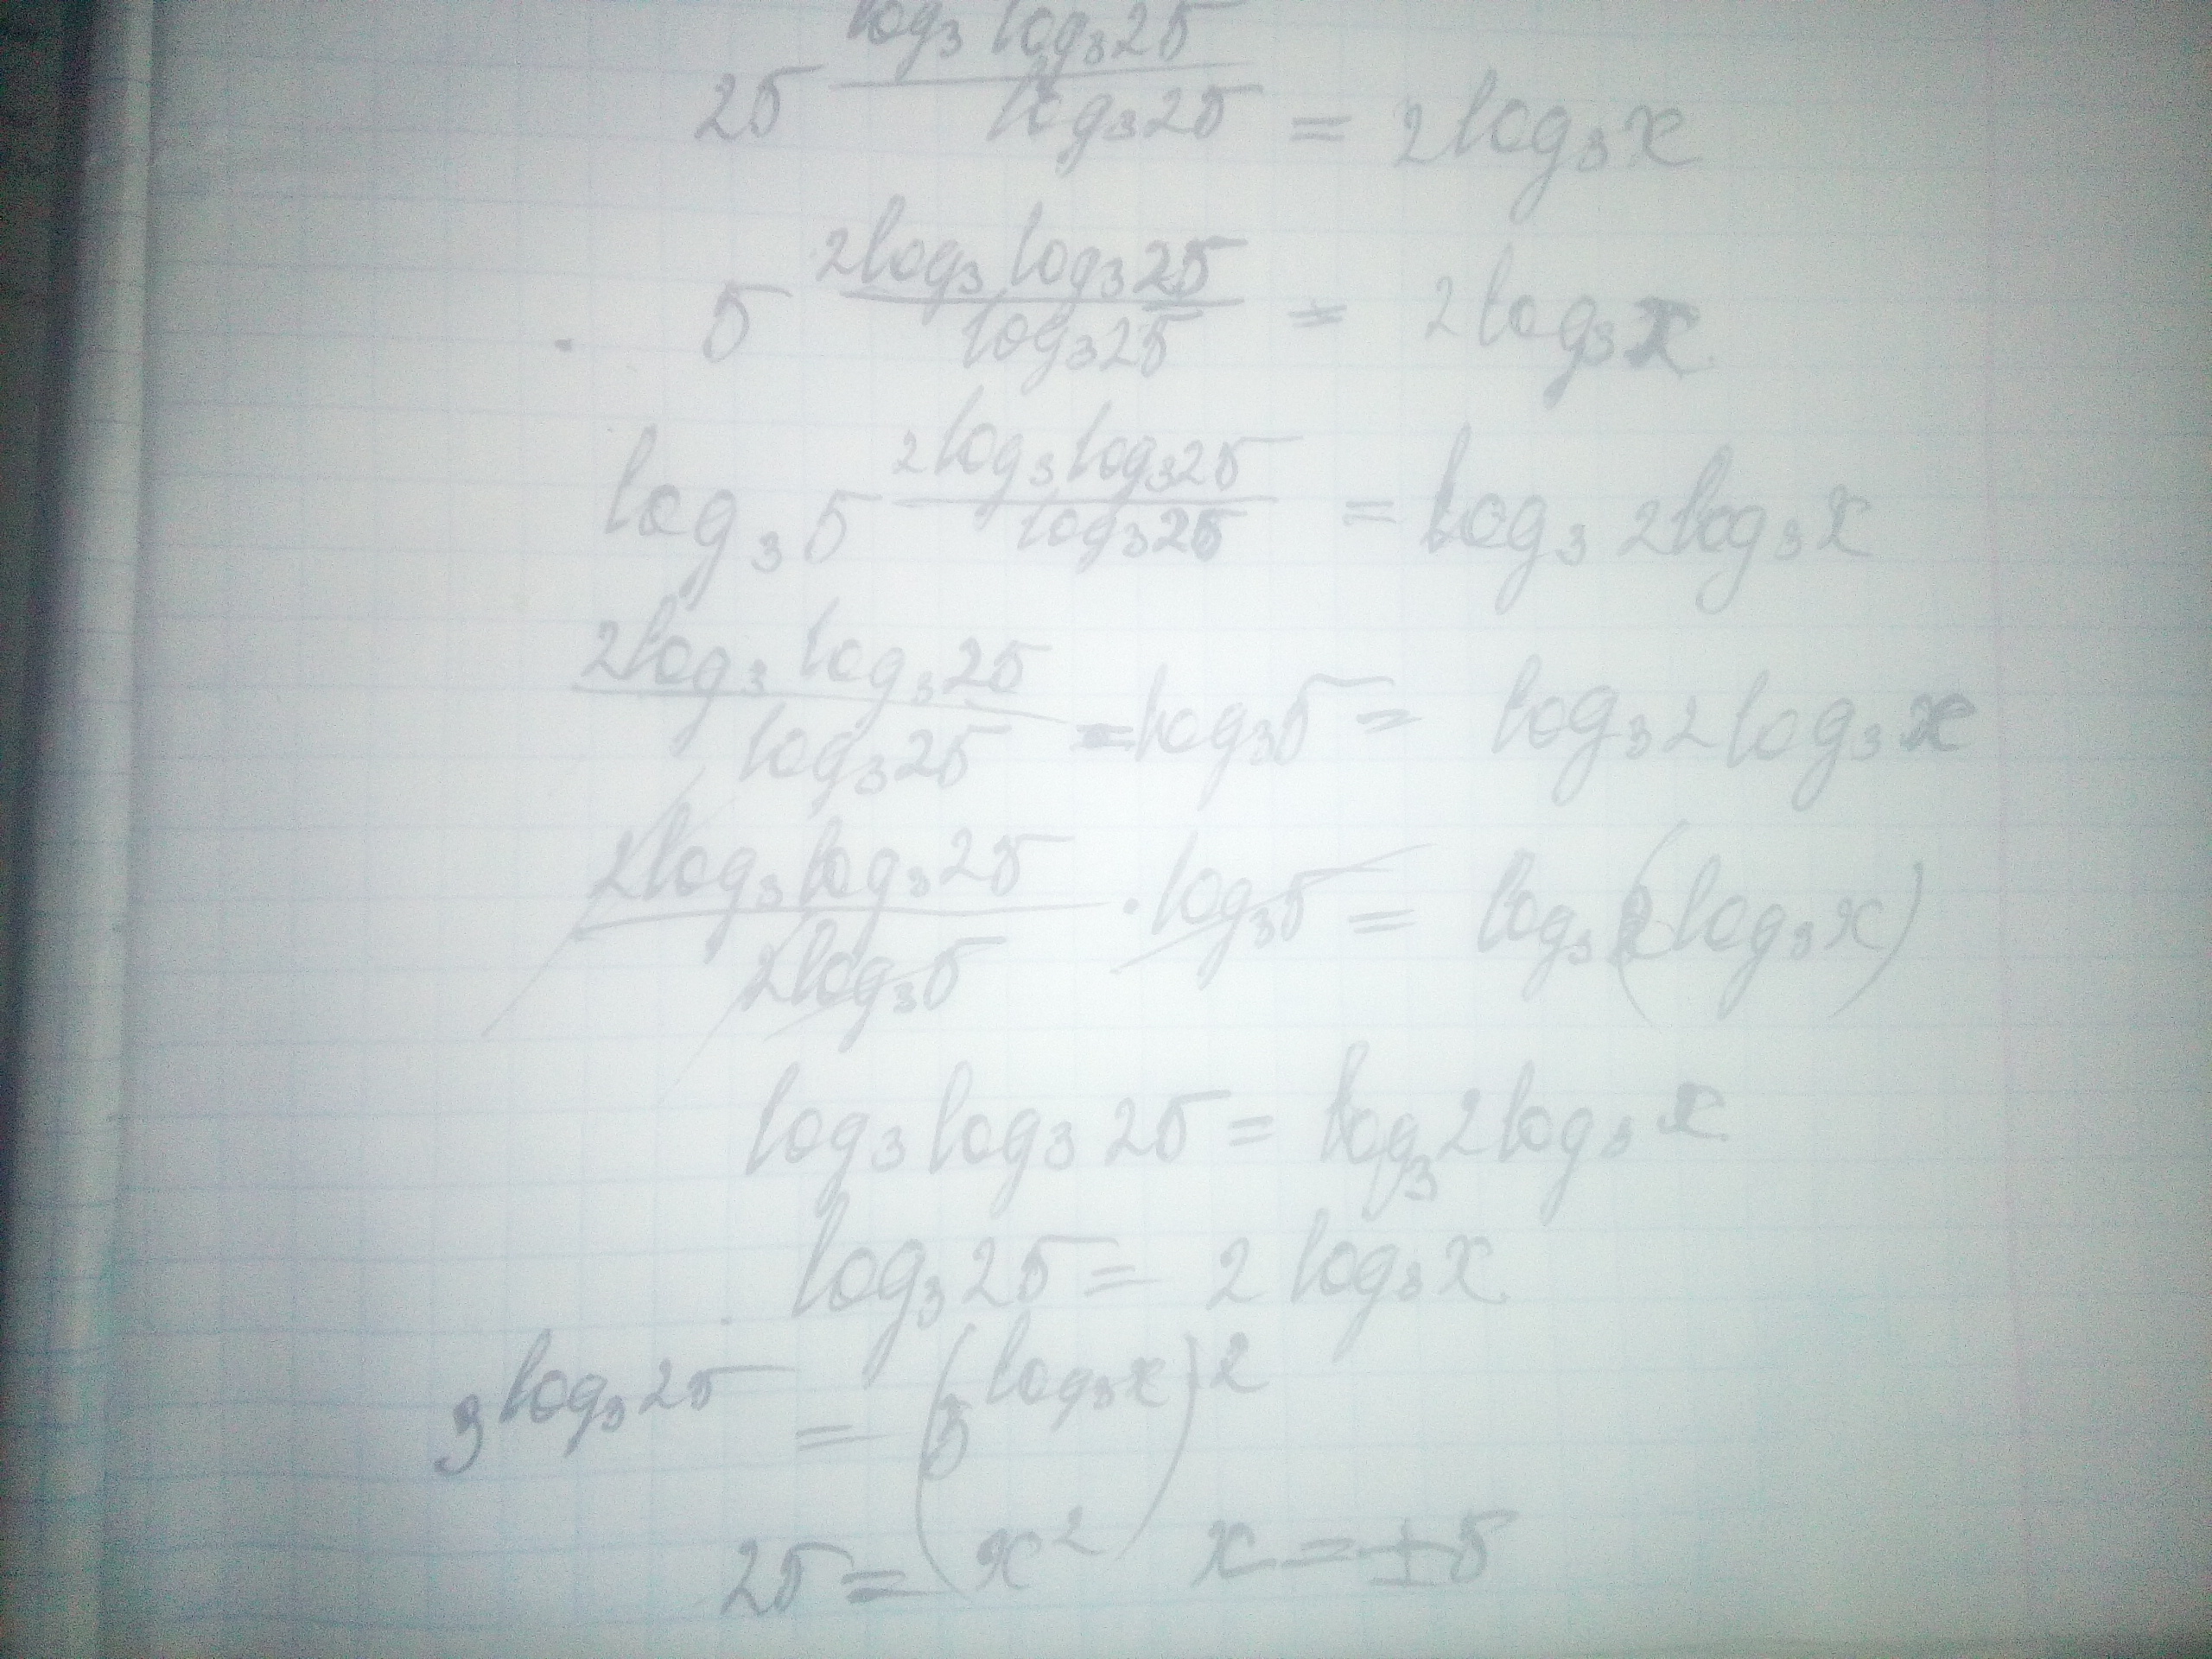 25^(log₃ log₃25 / log₃25) = 2log₃x
5^(2log₃ log₃25 / log₃25) = 2log₃x
log₃5^(2log₃ log₃25 / log₃25) = log₃ 2log₃x
2log₃ log₃25 / log₃25 - log₃5 = log₃ 2log₃x
2log₃ log₃25 / 2log₃5 · log₃5 = log₃(2log₃x)
log₃ log₃ 25 = log₃ 2log₃x
log₃ 25 = 2 log₃x
3^(log₃25) = (3^(log₃x))²
25 = x² x = ±5